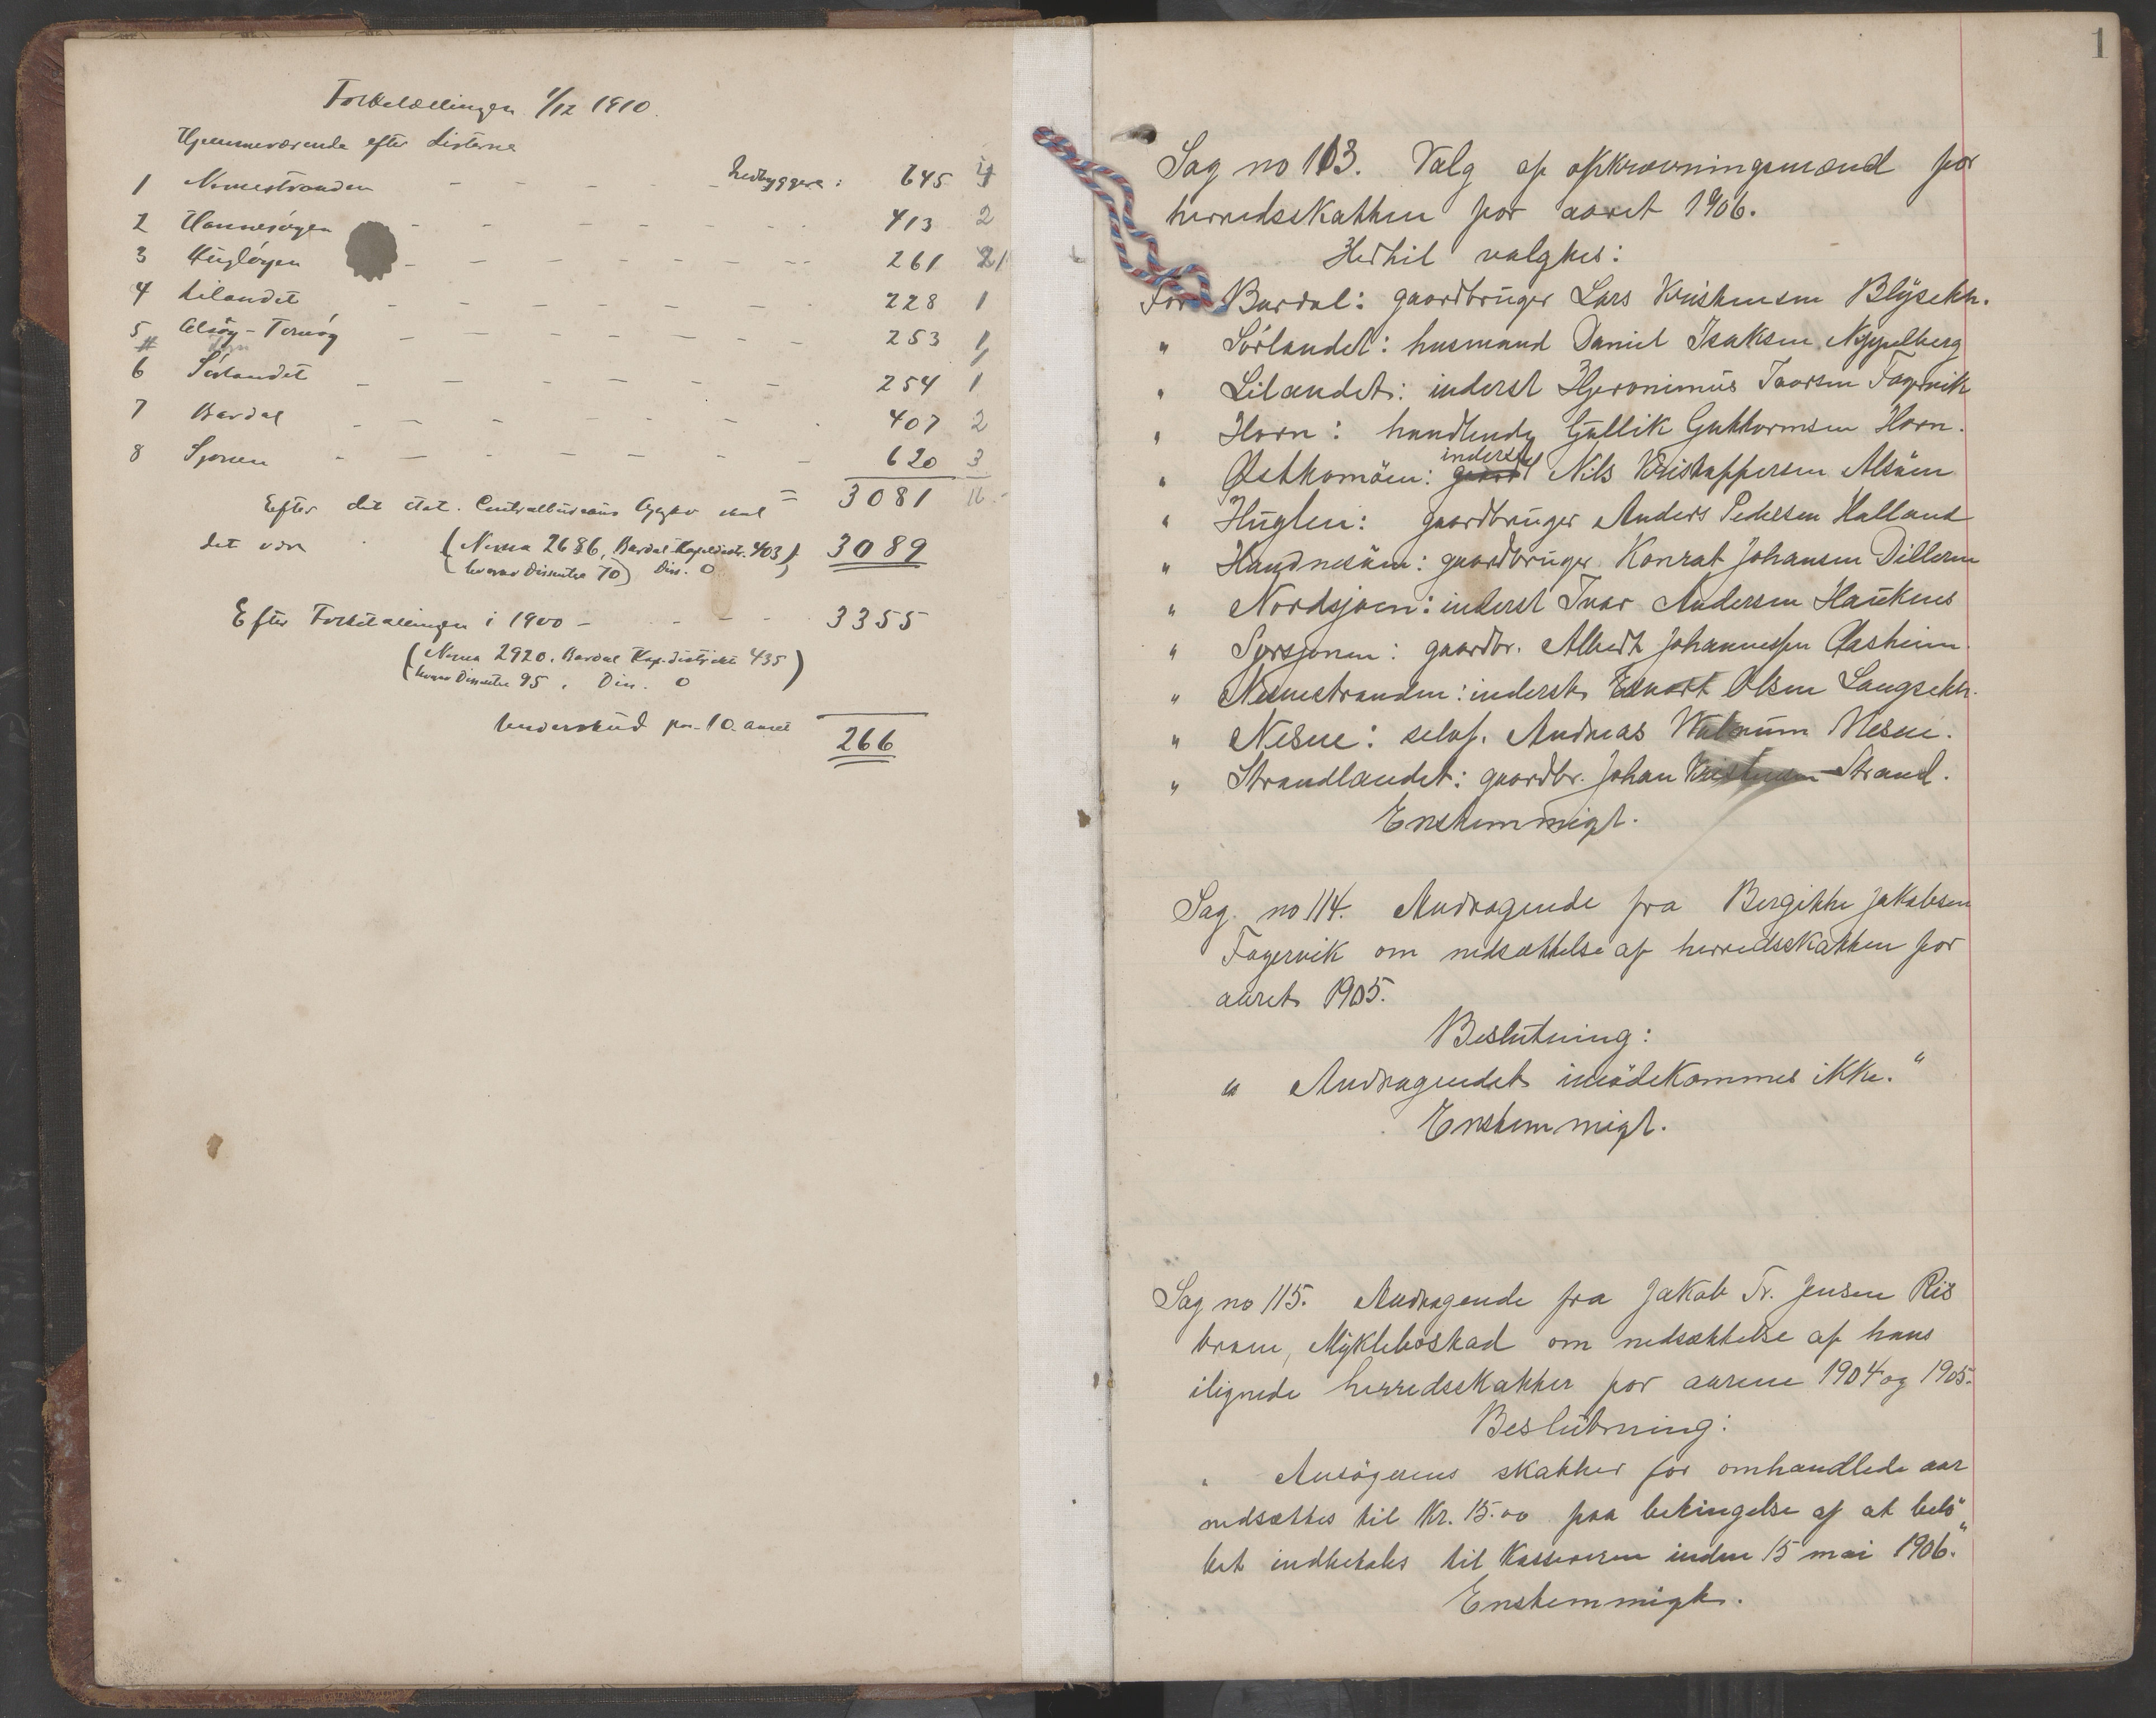 Folketællingen 1/12 1910.
Hjemmeværende efter Listerne
1 Nesnestranden - - - - Indbyggere: 645 4
2 Hannesøyen - - - - - - 413 2
3 Hugløyen - - - - - - 261 21
4 Lilandet - - - - - - 228 1
5 Alsøy-Tomøy - - - - - 253 1
6 Sørlandet - - - - - 254 1
7 Bardal - - - - - - 407 2
8 Sjonen - - - - - - 620 3
Efter det stat. Centralbureaus Opgav skal = 3081 16
det være (Nesna 2686, Bardal Kapeldistr. 403) 3089
hvorav Dissentere 70) Diss. 0
Efter Folketællingen i 1900 - - - - 3355
(Nesna 2920. Bardal Kap.distrikt 435)
hvorav Dissentere 95. Diss. 0
Underskud paa 10 aaret 266
1
Sag no 113. Valg af opkrævningsmænd for
herredsskatten for aaret 1906.
Hertil valgtes:
For Bardal: gaardbruger Lars Kristensen Blysekk.
" Sørlandet: husmand Daniel Isaksen Nyppelberg
" Lilandet: inderst Hjeronimus Ivarsen Fagervik
" Horn: handlende Gullik Guttormsen Horn.
inderst
" Østkomöen: gaard Nils Kristoffersen Alsöen
" Huglen: gaardbruger Anders Pedersen Halland
" Handnesöen: gaardbruger Konrat Johansen Dillern
" Nordsjoen: inderst Ivar Andersen Haukens
" Sørsjonen: gaardbr. Albert Johannessen Aasheim.
" Nesnestranden: inderst Edvart Olsen Langsekk.
" Nesne: selvf. Andreas Walnum Nesne.
" Strandlandet: gaardbr. Johan Kristensen Strand.
Enstemmigt.
Sag no 114. Andragende fra Bergitte Jakobsen
Fagervik om nedsættelse af herredsskatten for
aaret 1905.
Beslutning:
" Andragendet imödekommes ikke."
Enstemmigt.
Sag no 115. Andragende fra Jakob Tr. Jensen Ris
braaen, Mykleboskad om nedsættelse af hans
ilignede herredsskatter for aarene 1904 og 1905.
Beslutning:
" Ansögerens skatter for omhandlede aar
nedsættes til Kr. 15.00 paa betingelse af at belö
bet indbetales til Kassereren inden 15 mai 1906."
Enstemmigt.